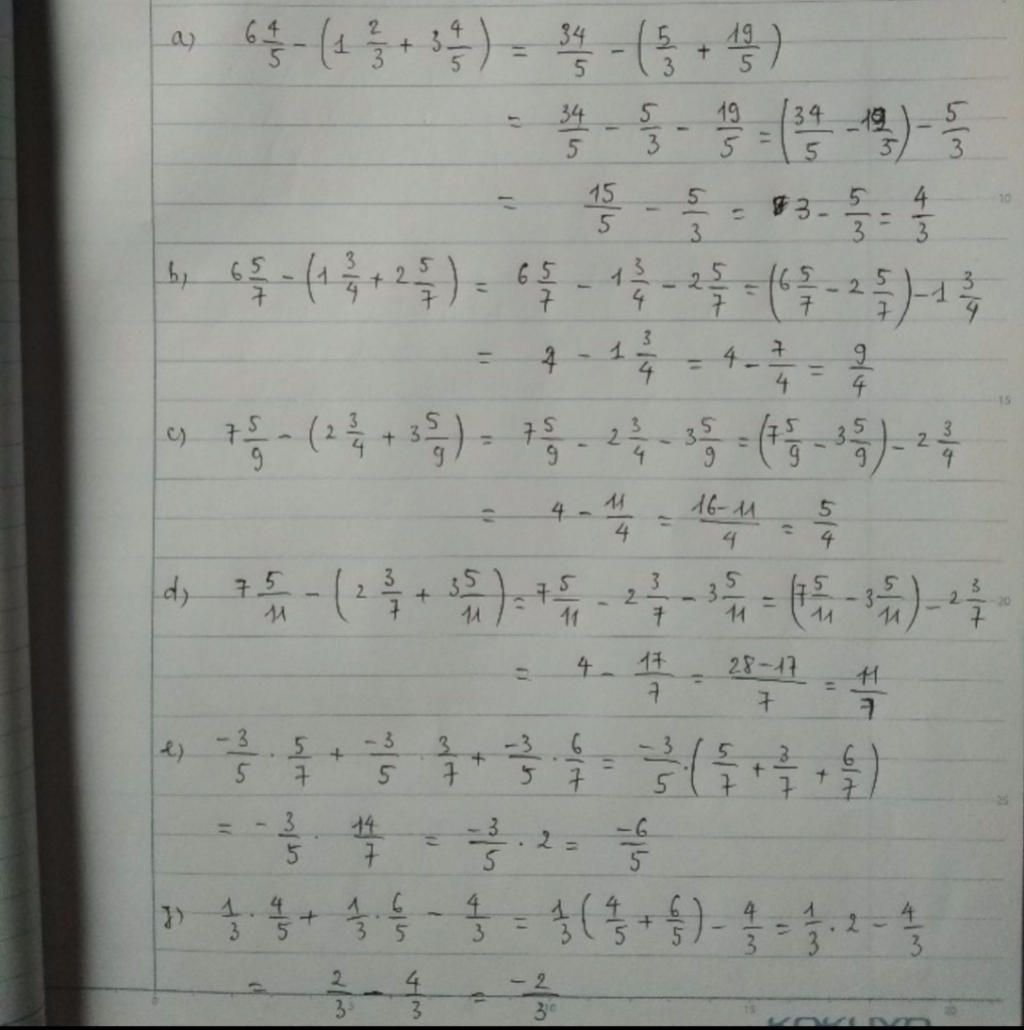 a) 6 4/5 - (1 2/3 + 3 4/5) = 34/5 - (5/3 + 19/5)
= 34/5 - 5/3 - 19/5 = (34/5 - 19/5) - 5/3
= 15/5 - 5/3 = 3 - 5/3 = 4/3
b) 6 5/7 - (1 3/4 + 2 5/7) = 6 5/7 - 1 3/4 - 2 5/7 = (6 5/7 - 2 5/7) - 1 3/4
= 4 - 1 3/4 = 4 - 7/4 = 9/4
c) 7 5/9 - (2 3/4 + 3 5/9) = 7 5/9 - 2 3/4 - 3 5/9 = (7 5/9 - 3 5/9) - 2 3/4
= 4 - 11/4 = (16-11)/4 = 5/4
d) 7 5/11 - (2 3/7 + 3 5/11) = 7 5/11 - 2 3/7 - 3 5/11 = (7 5/11 - 3 5/11) - 2 3/7
= 4 - 17/7 = (28-17)/7 = 11/7
e) -3/5 . 5/7 + -3/5 . 3/7 + -3/5 . 6/7 = -3/5 . (5/7 + 3/7 + 6/7)
= -3/5 . 14/7 = -3/5 . 2 = -6/5
1/3 . 4/5 + 1/3 . 6/5 - 4/3 = 1/3 (4/5 + 6/5) - 4/3 = 1/3 . 2 - 4/3
= 2/3 - 4/3 = -2/3